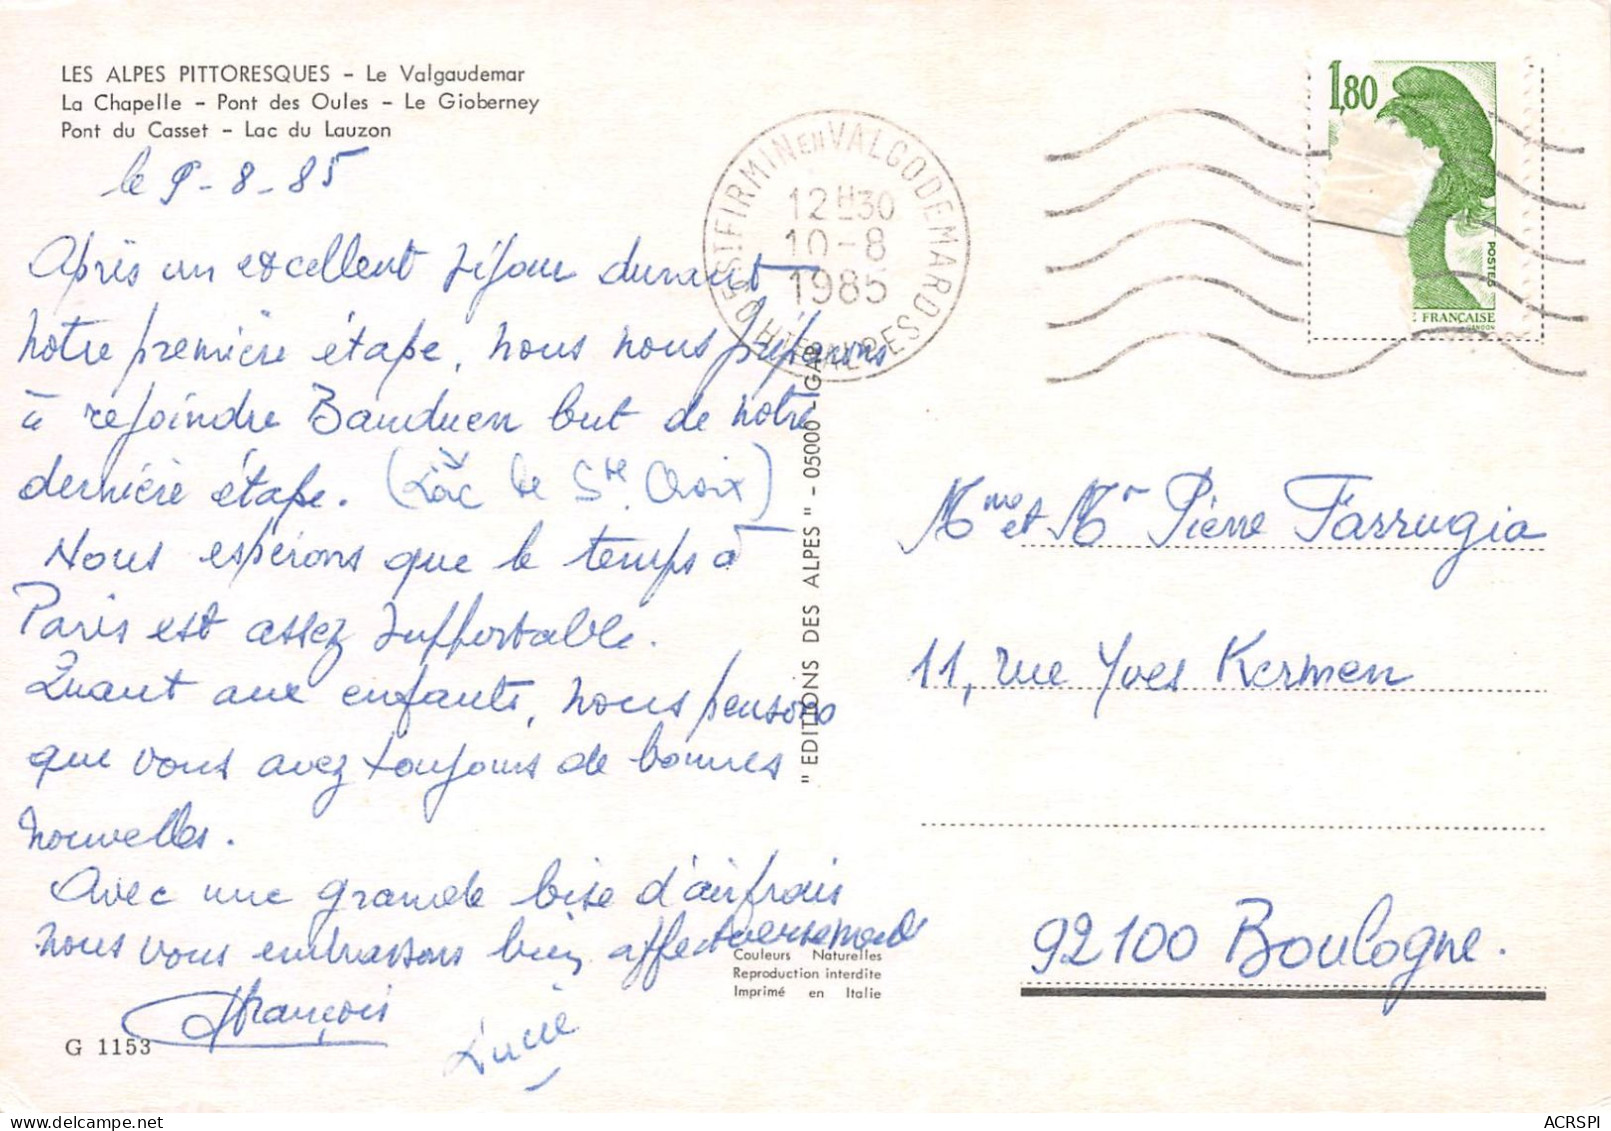 LES ALPES PITTORESQUES - Le Valgaudemar
La Chapelle - Pont des Oules - Le Gioberney
Pont du Casset - Lac du Lauzon
le 9-8-85
Après un excellent séjour durant
notre première étape, nous nous préparons
à rejoindre Bauduen but de notre
dernière étape. (Lac de Ste Croix)
Nous espérons que le temps à
Paris est assez supportable.
Quant aux enfants, nous pensons
que vous avez toujours de bonnes
nouvelles.
Avec une grande bise d'air frais
nous vous embrassons bien affectueusement
François
Lucie
G 1153
Couleurs Naturelles
Reproduction interdite
Imprimé en Italie
"EDITIONS DES ALPES" - 05000 - GAP
05 ST FIRMIN EN VALGODEMARD
HTES ALPES
12H30
10-8
1985
1,80
POSTES
FRANÇAISE
GANDON
Mme et Mr Pierre Farrugia
11, rue Yves Kermen
92100 Boulogne.
ACRSPI